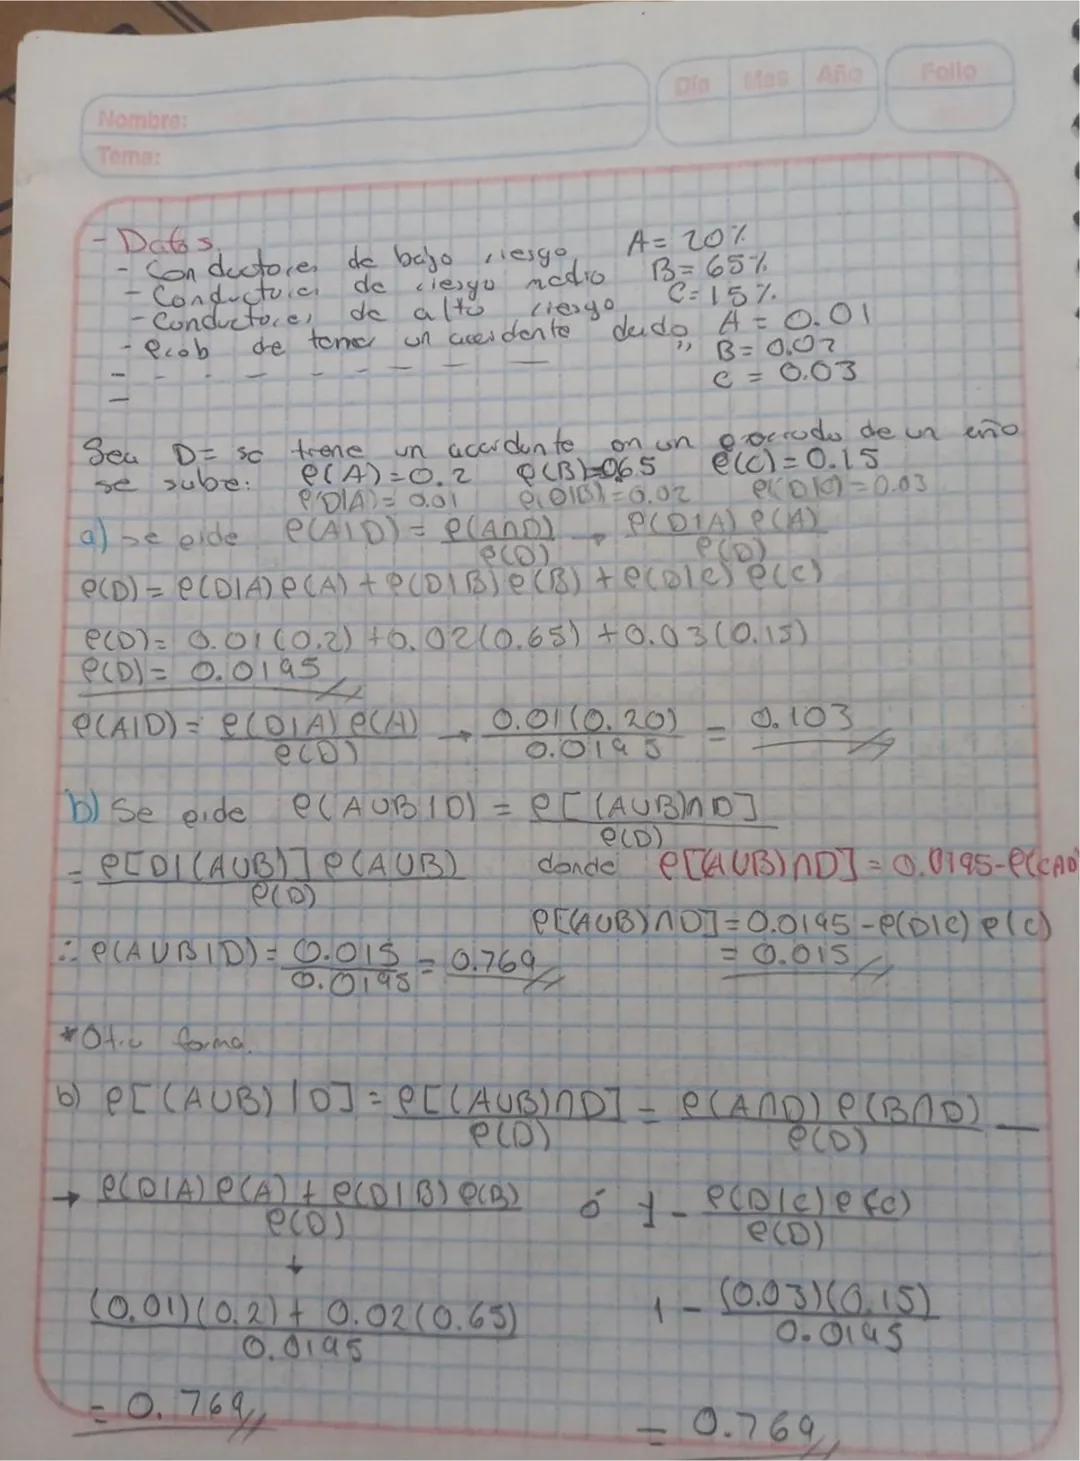 Día Mes Año Folio
Nombre:
Tema:
- Datos.
- Conductores de bajo riesgo A = 20%
- Conductores de riesgo medio B = 65%
- Conductores de alto riesgo C = 15%
- Prob de tener un accidente dado A = 0.01
" B = 0.02
C = 0.03
Sea D = se tiene un accidente en un periodo de un año
se sabe: P(A) = 0.2 P(B) = 065 P(C) = 0.15
P(D|A) = 0.01 P(D|B) = 0.02 P(D|C) = 0.03
a) se pide P(A|D) = P(A∩D)/P(D) → P(D|A) P(A)/P(D)
P(D) = P(D|A) P(A) + P(D|B) P(B) + P(D|C) P(C)
P(D) = 0.01(0.2) + 0.02(0.65) + 0.03(0.15)
P(D) = 0.0195
P(A|D) = P(D|A) P(A)/P(D) → 0.01(0.20)/0.0195 = 0.103
b) Se pide P(A∪B|D) = P[(A∪B)∩D]/P(D)
= P[D|(A∪B)] P(A∪B)/P(D) donde P[(A∪B)∩D] = 0.0195-P(C∩D)
P[(A∪B)∩D] = 0.0195 - P(D|C) P(C)
∴ P(A∪B|D) = 0.015/0.0195 = 0.769 = 0.015
*Otra forma.
b) P[(A∪B)|D] = P[(A∪B)∩D]/P(D) = P(A∩D) P(B∩D)/P(D)
→ P(D|A) P(A) + P(D|B) P(B)/P(D) ó 1 - P(D|C) P(C)/P(D)
↓
(0.01)(0.2) + 0.02(0.65)/0.0195 1 - (0.03)(0.15)/0.0195
= 0.769 = 0.769